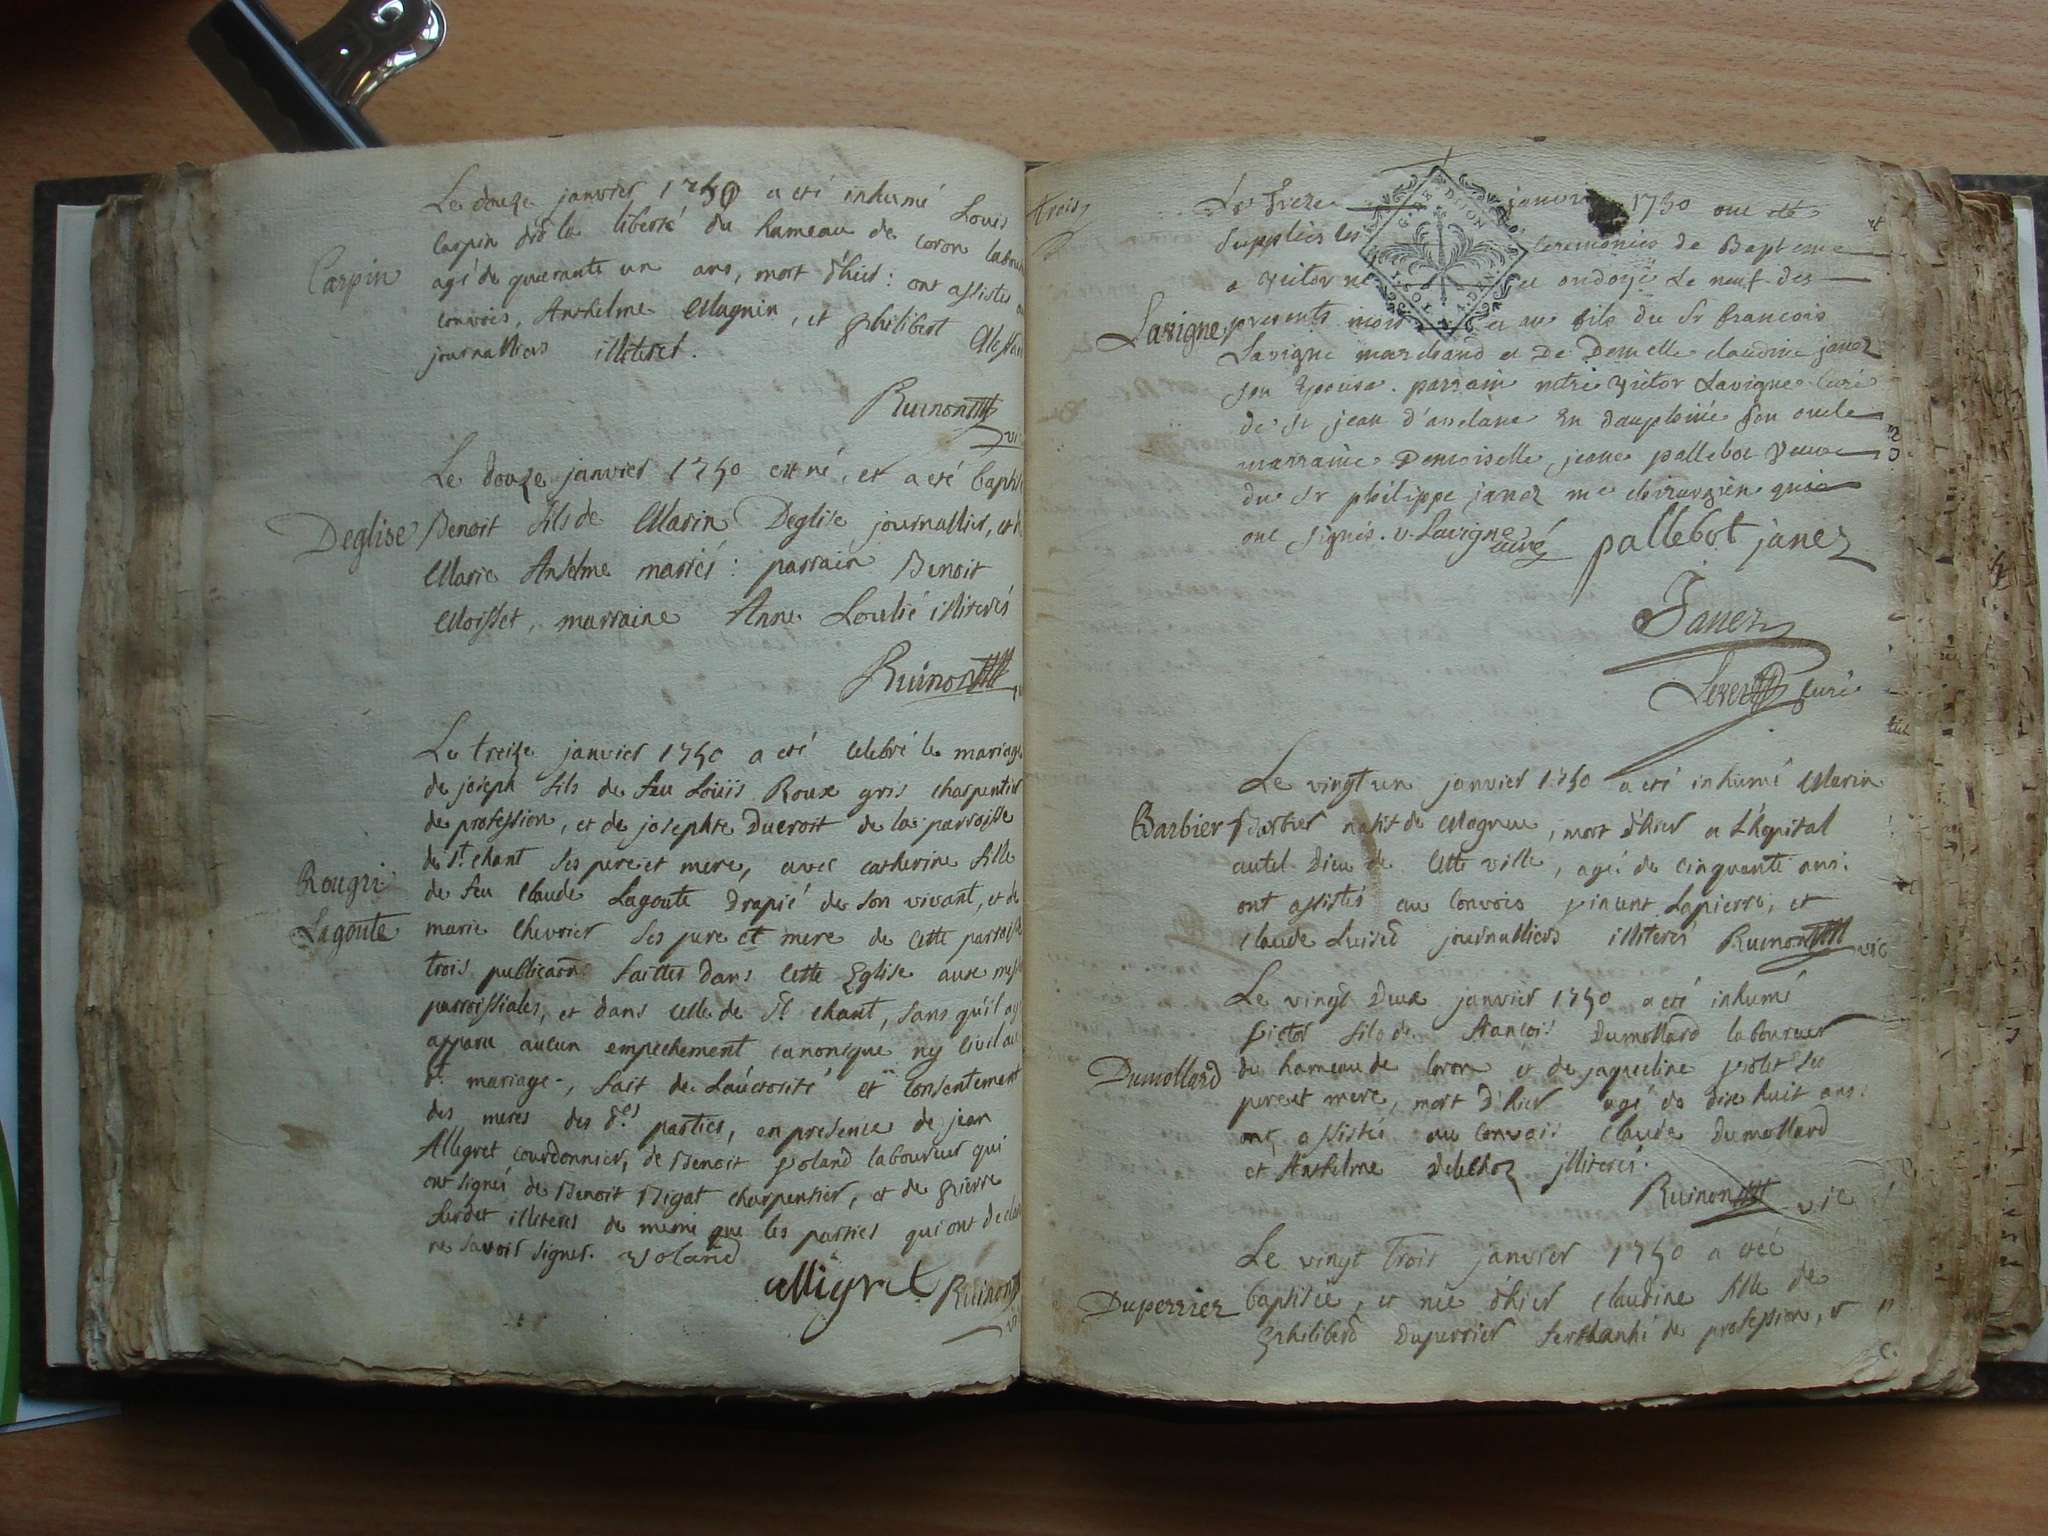 Le douze janvier 1750 a eté inhumé Louis
Carpin
Carpin dit la liberté du hameau de Coron
agé de quarante un ans, mort d'hier : ont assistés
convois, Anthelme Magnin, et philibert
journalliers illiteres.
Ruinon
Le douze janvier 1750 est né, et a eté
Deglise
Benoit fils de Marin Deglise journallier,
Marie Anselme mariés : parrain Benoit
Moisset, marraine Anne illiterés
Ruinon
Le treize janvier 1750 a eté celebré le mariage
de joseph fils de feu Loüis Roux gris charpentier
de profession, et de josephte Ducroit de la parroisse
de St chant ses pere et mere, avec catherine fille
Rougri
de feu Claude Lagoute drapié de son vivant, et de
Lagoute
marie Chevrier ses pere et mere de cette parroisse
trois publicaons faittes dans cette Eglise aux
parroissiales, et dans celle de St chant, sans qu'il
apparu aucun empechement canonique ny civil au
dt. mariage, fait de L'auctorité et consentement
des meres des des. parties, en presence de jean
Allegret courdonnier, de Benoit Voland laboureur qui
ont signés de Benoit Bigot charpentier, et de pierre
illiteres de meme que les parties qui ont
ne savoir signer. Voland
allegret Ruinon
trois
Le treze janvier 1750 ont eté
supplées les ceremonies de Bapteme
a victor né et ondoyé Le neuf des
Lavigne
presents mois et an fils du Sr francois
Lavigne marchand et De Demelle claudine janez
son Epouse. parrain mtre victor Lavigne Curé
de St jean d' En dauphiné son oncle
marraine Demoiselle jeane pallebot veuve
du Sr philippe janez me chirurgien qui
ont signés. v. Lavigne curé pallebot janez
Janez
curé
Le vingt un janvier 1750 a eté inhumé Marin
Barbier
Barbier natif de Magnieu, mort d'hier a L'hopital
autel Dieu de cette ville, agé de cinquante ans.
ont assistés au convois vincent Lapierre, et
Claude journalliers illiterés Ruinon vic
Le vingt Deux janvier 1750 a eté inhumé
victor fils de francois Dumollard laboureur
Dumollard
du hameau de Coron et de jaqueline violet ses
pere et mere, mort d'hier agé de dix huit ans.
ont assistés au convois Claude Dumollard
et Anthelme illiterés.
Ruinon vic
Le vingt Trois janvier 1750 a eté
Duperrier
baptisée, et née d'hier Claudine fille de
philiberd Duperrier de profession, et